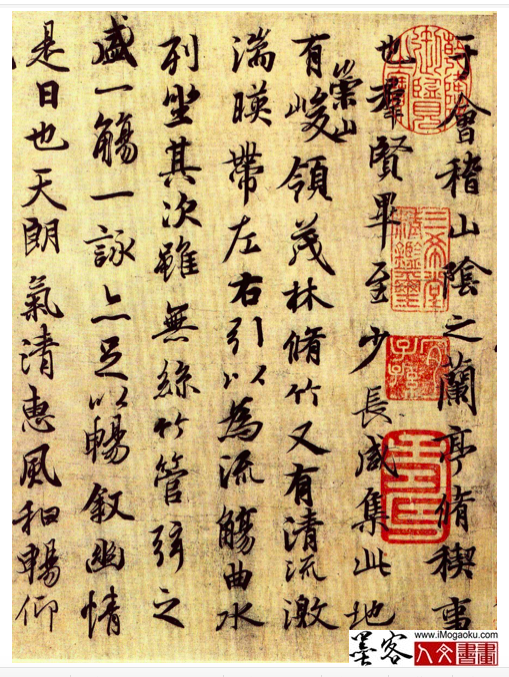 于會稽山陰之蘭亭脩稧事
也羣賢畢至少長咸集此地
有崇山峻領茂林脩竹又有清流激
湍暎帶左右引以為流觴曲水
列坐其次雖無絲竹管弦之
盛一觴一詠亦足以暢敘幽情
是日也天朗氣清惠風和暢仰
三希堂精鑑璽
宜子孫
墨客
www.iMogaoku.com
人文書畫